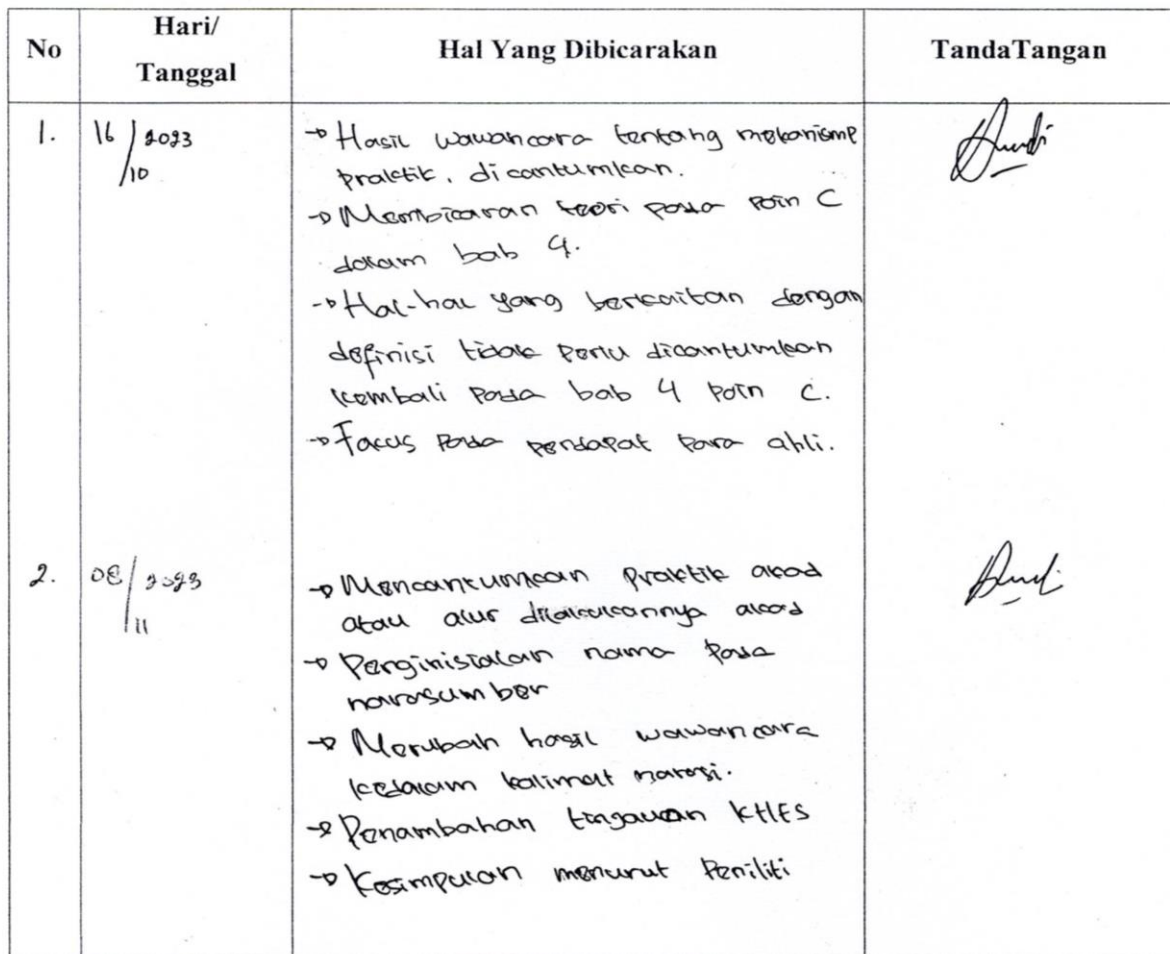 No
Hari/
Tanggal
Hal Yang Dibicarakan
TandaTangan
1.
16/10 2023
→ Hasil wawancara tentang mekanisme
praktik, dicantumkan.
→ Membicaran teori pada poin C
dalam bab 4.
→ Hal-hal yang berkaitan dengan
definisi tidak perlu dicantumkan
kembali pada bab 4 poin C.
→ Focus pada pendapat para ahli.
2.
08/11 2023
→ Mencantumkan praktik akad
atau alur dilakukannya akad
→ Penginisialan nama pada
narasumber
→ Merubah hasil wawancara
kedalam kalimat narasi.
→ Penambahan tinjauan KHES
→ Kesimpulan menurut Peniliti